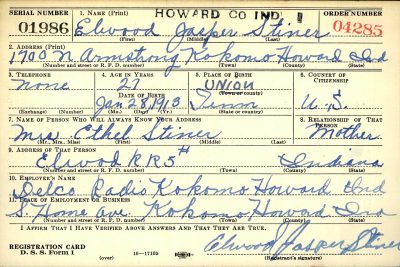 SERIAL NUMBER
1. NAME (Print)
HOWARD CO IND. 1
ORDER NUMBER
01986
Elwood Jasper Stiner
04285
(First) (Middle) (Last)
2. ADDRESS (Print)
1900 N Armstrong Kokomo Howard Ind
(Number and street or R. F. D. number) (Town) (County) (State)
3. TELEPHONE
4. AGE IN YEARS
5. PLACE OF BIRTH
6. COUNTRY OF CITIZENSHIP
none
27
UNION
DATE OF BIRTH
(Town or county)
Jan 28, 1913
U. S.
(Exchange) (Number)
(Mo.) (Day) (Yr.)
(State or country)
7. NAME OF PERSON WHO WILL ALWAYS KNOW YOUR ADDRESS
8. RELATIONSHIP OF THAT PERSON
Mrs Ethel Stiner
Mother
(Mr., Mrs., Miss) (First) (Middle) (Last)
9. ADDRESS OF THAT PERSON
Elwood RR 5 Indiana
(Number and street or R. F. D. number) (Town) (County) (State)
10. EMPLOYER'S NAME
Delco Radio Kokomo Howard Ind
11. PLACE OF EMPLOYMENT OR BUSINESS
S. Home ave. Kokomo Howard Ind
(Number and street or R. F. D. number) (Town) (County) (State)
I AFFIRM THAT I HAVE VERIFIED ABOVE ANSWERS AND THAT THEY ARE TRUE.
REGISTRATION CARD
D. S. S. Form 1
(over)
16—17105
Elwood Jasper Stiner
(Registrant's signature)